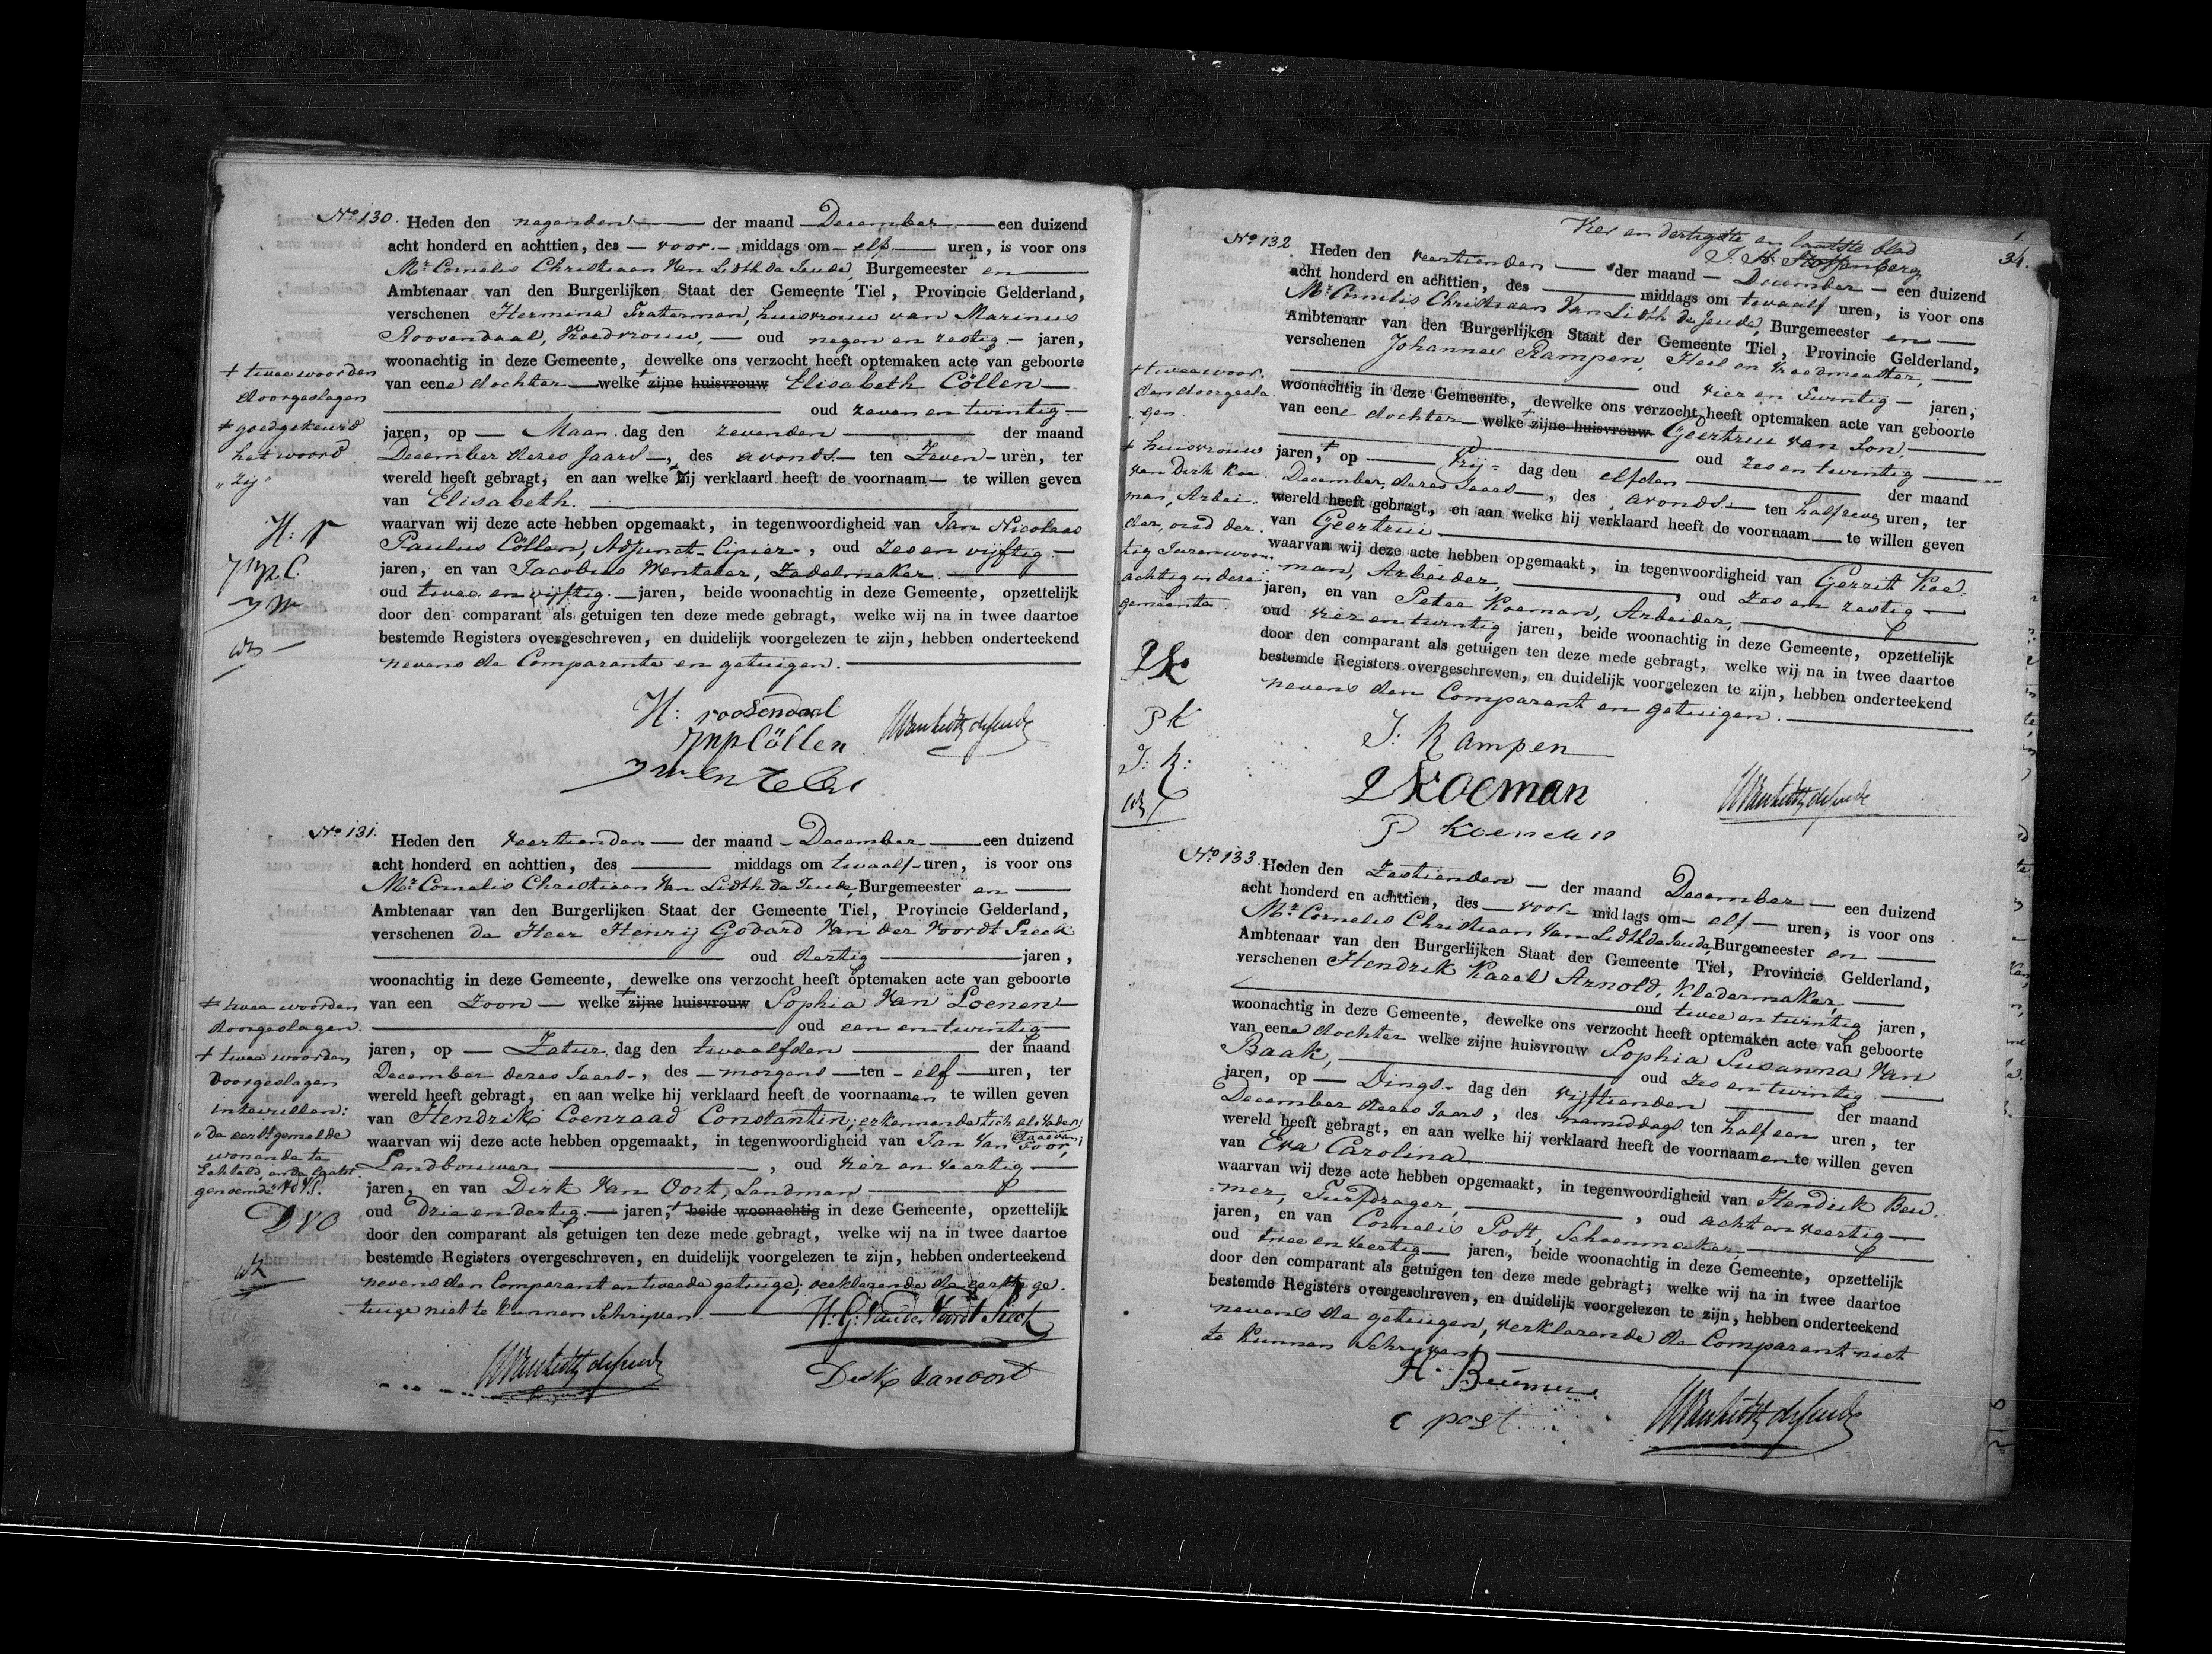 No 130. Heden den negenden der maand December een duizend
acht honderd en achttien, des voor- middags om elf uren, is voor ons
Mr. Cornelis Christiaan Van Lidth de Jeude, Burgemeester en
Ambtenaar van den Burgerlijken Staat der Gemeente Tiel, Provincie Gelderland,
verschenen Hermina Fraterman, huisvrouw van Marinus
Roosendaal, Vroedvrouw, oud negen en zestig jaren,
woonachtig in deze Gemeente, dewelke ons verzocht heeft optemaken acte van geboorte
van eene dochter welke + zijne huisvrouw Elisabeth Cöllen
oud zeven en twintig
jaren, op Maandag den zevenden der maand
December dezes Jaars, des avonds ten Zeven uren, ter
wereld heeft gebragt, en aan welke zij verklaard heeft de voornaam te willen geven
van Elisabeth.
waarvan wij deze acte hebben opgemaakt, in tegenwoordigheid van Jan Nicolaas
Paulus Cöllen, Adjunct-Cipier, oud zes en vijftig
jaren, en van Jacobus Wenteler, Zadelmaker.
oud twee en vijftig jaren, beide woonachtig in deze Gemeente, opzettelijk
door den comparant als getuigen ten deze mede gebragt, welke wij na in twee daartoe
bestemde Registers overgeschreven, en duidelijk voorgelezen te zijn, hebben onderteekend
nevens de Comparante en getuigen.
+ twee woorden
doorgeslagen
+ goedgekeurd
het woord
"zij"
H: r
JNPC.
JW
H: roosendaal
JNPCöllen
No 131. Heden den veertienden der maand December een duizend
acht honderd en achttien, des middags om twaalf uren, is voor ons
Mr. Cornelis Christiaan Van Lidth de Jeude, Burgemeester en
Ambtenaar van den Burgerlijken Staat der Gemeente Tiel, Provincie Gelderland,
verschenen de Heer Henrij Godard Van der Voordt Pieck
oud dertig jaren,
woonachtig in deze Gemeente, dewelke ons verzocht heeft optemaken acte van geboorte
van een Zoon welke + zijne huisvrouw Sophia Van Loenen
oud een en twintig
jaren, op Zaturdag den twaalfden der maand
December dezes Jaars, des morgens ten elf uren, ter
wereld heeft gebragt, en aan welke hij verklaard heeft de voornaamen te willen geven
van Hendrik Coenraad Constantin; erkennende zich als Vader
waarvan wij deze acte hebben opgemaakt, in tegenwoordigheid van Jan Van
Landbouwer, oud vier en veertig
jaren, en van Dirk Van Oort, Landman
oud drie en dertig jaren, + beide woonachtig in deze Gemeente, opzettelijk
door den comparant als getuigen ten deze mede gebragt, welke wij na in twee daartoe
bestemde Registers overgeschreven, en duidelijk voorgelezen te zijn, hebben onderteekend
nevens den Comparant en tweede getuige; verklarende de eerste ge-
tuige niet te kunnen Schrijven.
+ twee woorden
doorgeslagen
+ twee woorden
doorgeslagen
intevullen:
"de eerstgemelde
wonende te
Echteld, en de laatst
genoemde"
DVO
H: G: Van der Voordt Pieck
Dirk van oort
Vier en dertigste en laatste blad
34.
No 132 Heden den veertienden der maand December een duizend
acht honderd en achttien, des middags om twaalf uren, is voor ons
Mr. Cornelis Christiaan Van Lidth de Jeude, Burgemeester en
Ambtenaar van den Burgerlijken Staat der Gemeente Tiel, Provincie Gelderland,
verschenen Johannes Rampen, Heel en Vroedmeester,
oud vier en Twintig jaren,
woonachtig in deze Gemeente, dewelke ons verzocht heeft optemaken acte van geboorte
van eene dochter welke + zijne huisvrouw Geertrui van Son,
oud zes en twintig
jaren, + op Vrijdag den elfden der maand
December dezes Jaars, des avonds ten half uren, ter
wereld heeft gebragt, en aan welke hij verklaard heeft de voornaam te willen geven
van Geertrui
waarvan wij deze acte hebben opgemaakt, in tegenwoordigheid van Gerrit Koe-
man, Arbeider, oud zes en zestig
jaren, en van Peter Koeman, Arbeider,
oud vier en twintig jaren, beide woonachtig in deze Gemeente, opzettelijk
door den comparant als getuigen ten deze mede gebragt, welke wij na in twee daartoe
bestemde Registers overgeschreven, en duidelijk voorgelezen te zijn, hebben onderteekend
nevens den Comparant en getuigen.
+ twee woor-
den doorgesla
gen.
+ huisvrouw
van Dirk Koe
man, Arbei-
der, oud der-
tig Jaren woon-
achtig in deze
gemeente.
PK
J: R:
J: Rampen
Koeman
P Koeman
No 133 Heden den Zestienden der maand December een duizend
acht honderd en achttien, des voor middags om elf uren, is voor ons
Mr. Cornelis Christiaan Van Lidth de Jeude, Burgemeester en
Ambtenaar van den Burgerlijken Staat der Gemeente Tiel, Provincie Gelderland,
verschenen Hendrik Karel Arnold, Kledermaker,
oud twee en twintig jaren,
woonachtig in deze Gemeente, dewelke ons verzocht heeft optemaken acte van geboorte
van eene dochter welke zijne huisvrouw Sophia Susanna Van
Baak, oud zes en twintig
jaren, op Dingsdag den vijftienden der maand
December dezes Jaars, des namiddags ten half een uren, ter
wereld heeft gebragt, en aan welke hij verklaard heeft de voornaamen te willen geven
van Eva Carolina
waarvan wij deze acte hebben opgemaakt, in tegenwoordigheid van Hendrik Beu-
mer, Turfdrager, oud acht en veertig
jaren, en van Cornelis Post, Schoenmaker,
oud twee en veertig jaren, beide woonachtig in deze Gemeente, opzettelijk
door den comparant als getuigen ten deze mede gebragt; welke wij na in twee daartoe
bestemde Registers overgeschreven, en duidelijk voorgelezen te zijn, hebben onderteekend
nevens de getuigen, verklarende de Comparant niet
te kunnen Schrijven.
H: Beumer
C post